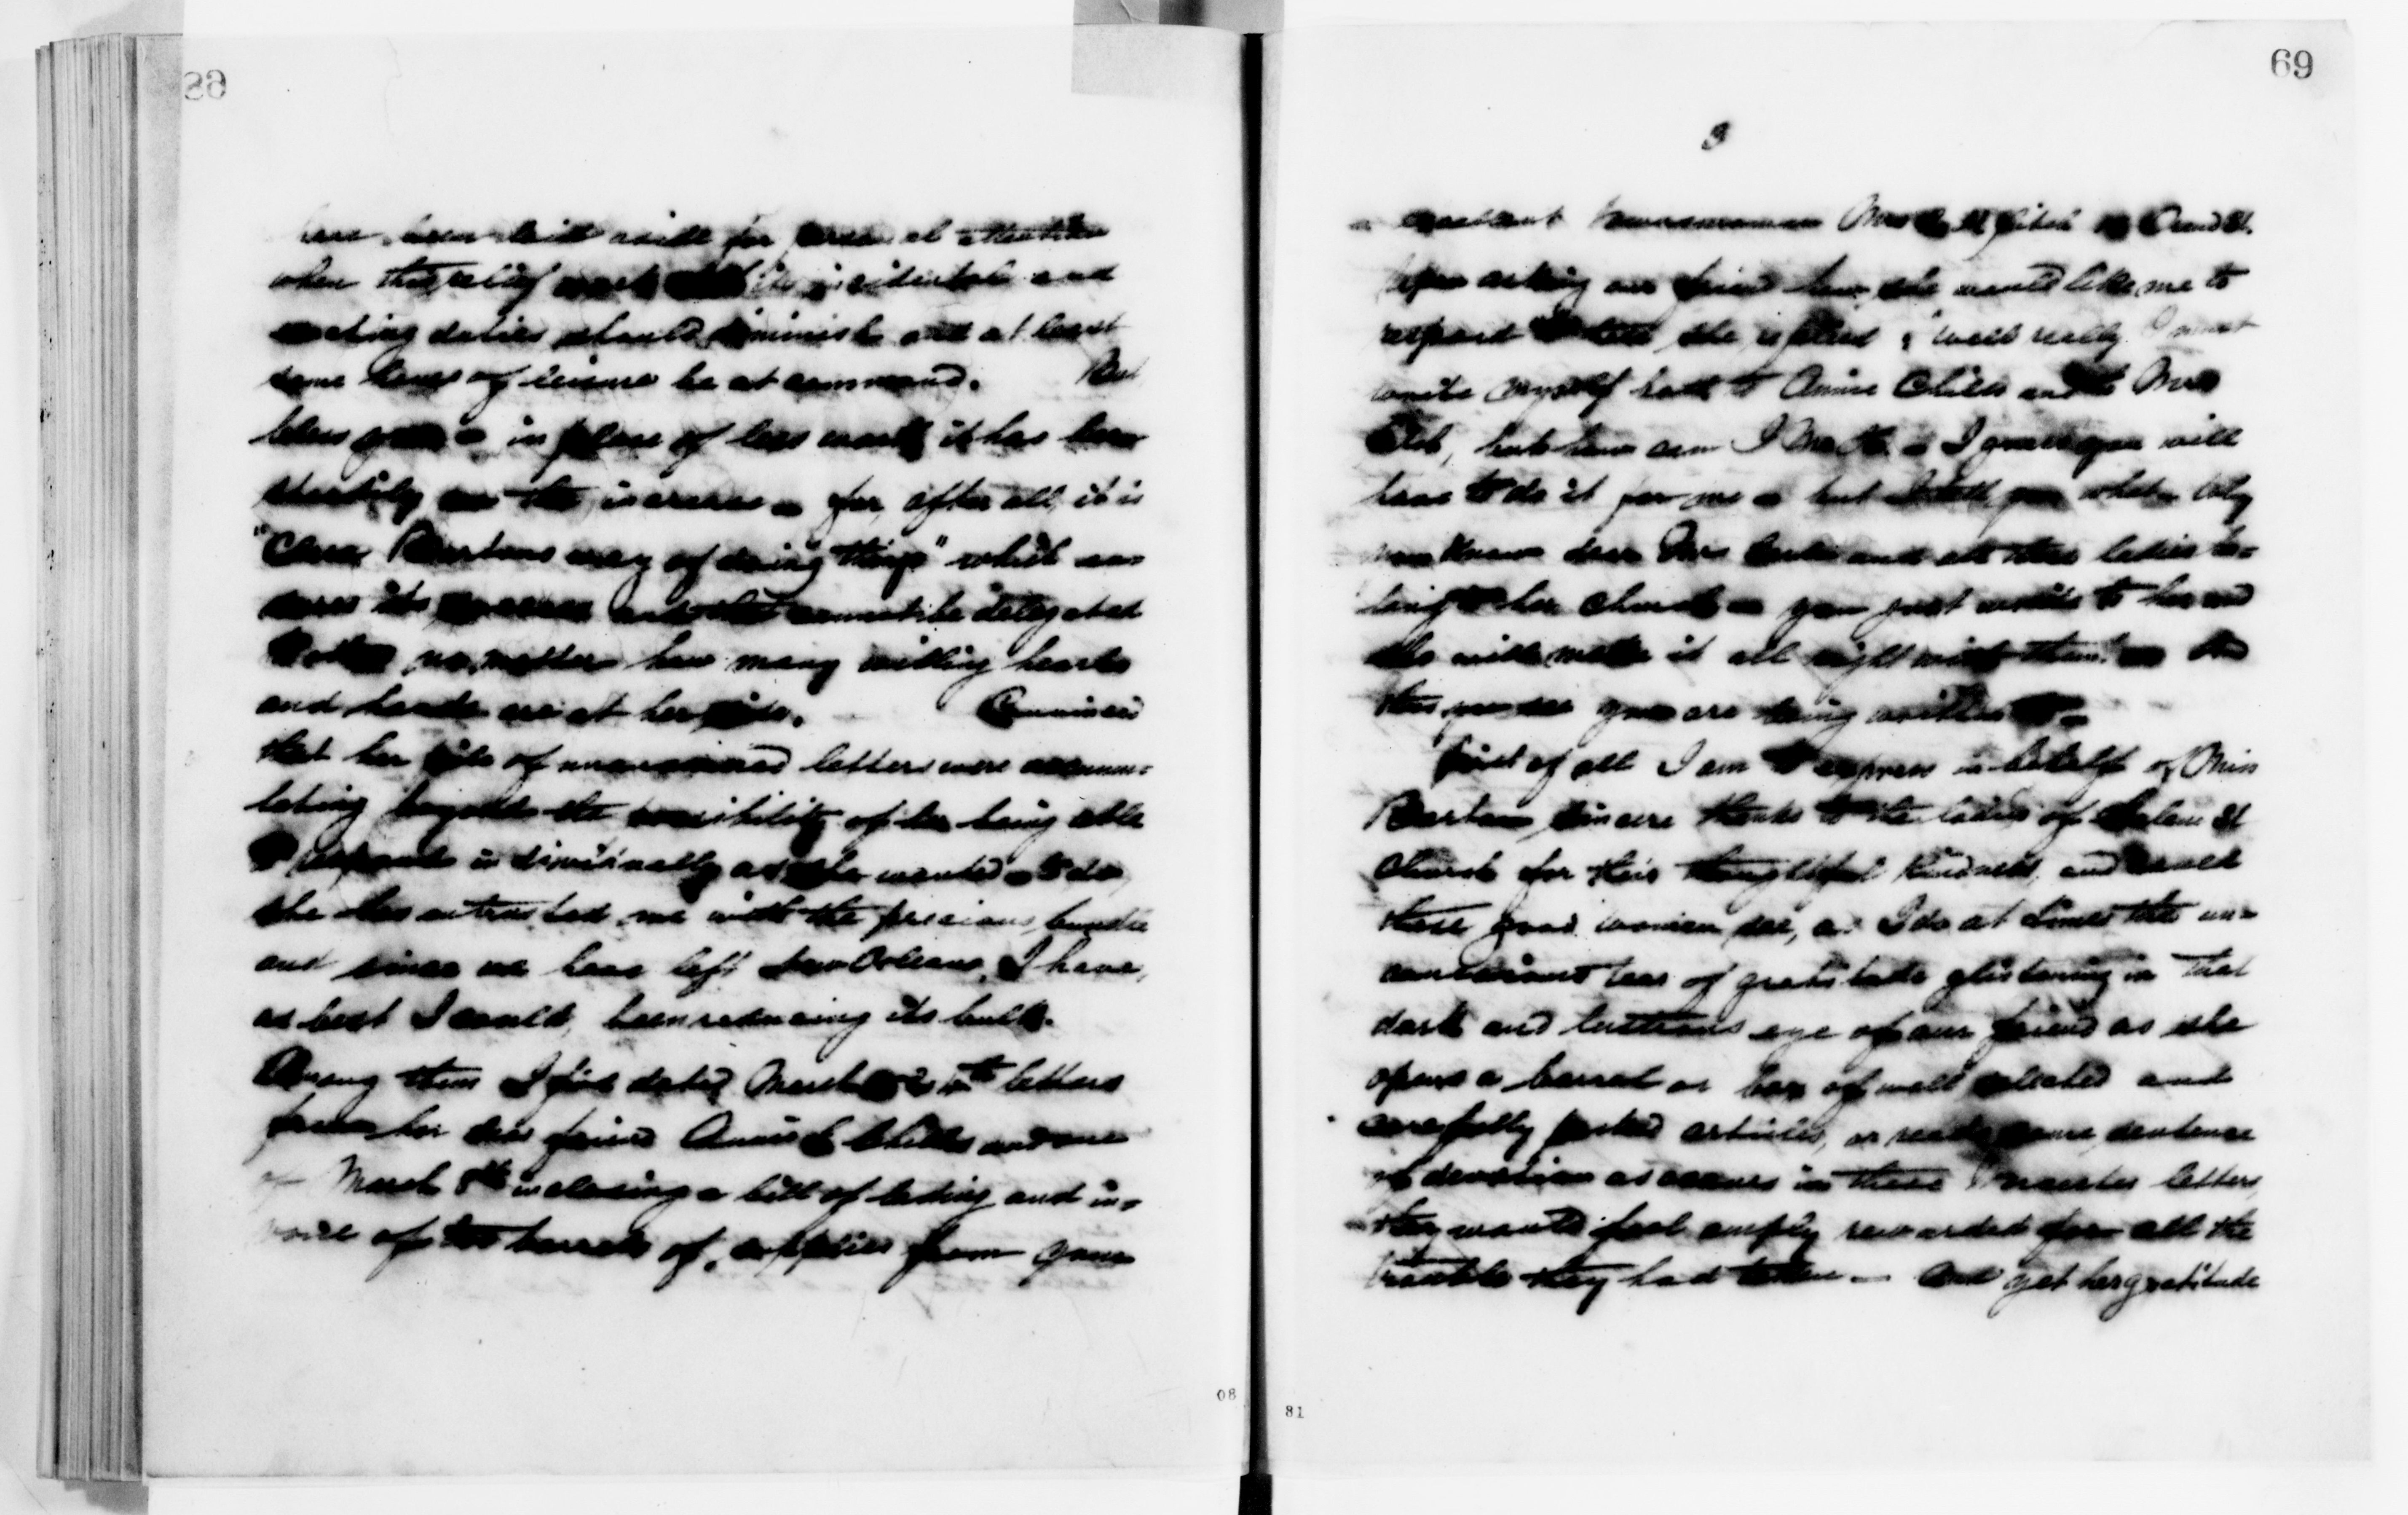 68
have been laid aside for personal attention
when this relief work and its incidental and
duties should diminish and at least
some hours of leisure be at command. But
bless you - in place of less work it has been
steadily on the increase - for, after all, it is
"Clara Bartons way of doing things" which en-
sures its success and that cannot be delegated
no matter how many willing hearts
and hands are at her side. Convinced
that her pile of unanswered letters were accumu-
lating beyond the possibility of her being able
to respond individually as she wanted to do,
she has entrusted me with the precious bundle
and since we have left New Orleans, I have,
as best I could, been reducing its bulk.
Among them I find dated March letters
from her dear friend Annie Childs and one
of March 8th inclosing a bill of lading and in-
voice of two barrels of supplies from your
80
69
3
excellent Mrs Fitch
Upon asking our friend how she would like me to
respond she replied, "Well really I must
write myself both to Annie Childs and to Mrs
Fitch, but how can I - I guess you will
have to do it for me - but I tell you what - Why
you know dear Mrs and all these ladies be-
long to her Church - you just write to her and
she will make it all right with them" - And
thus you see you are being written to -
First of all I am to express in behalf of Miss
Barton sincere thanks to the ladies of Salem St
Church for their thoughtful kindness, and could
these good women see, as I do at times the un-
conscious tear of gratitude glistening in that
dark and lustrous eye of our friend as she
opens a barrel or box of well selected and
carefully packed articles, or reads some sentence
of devotion as occurs in these Worcester letters,
they would feel amply rewarded for all the
trouble they had taken - And yet her gratitude
81